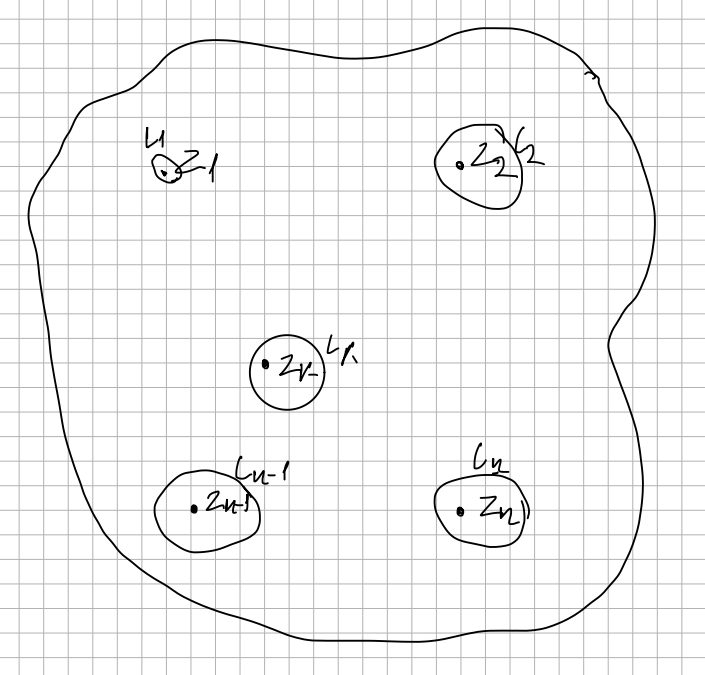 C1 Z1
Z2 C2
Zk Ck
Cn-1
Zn-1
Cn
Zn